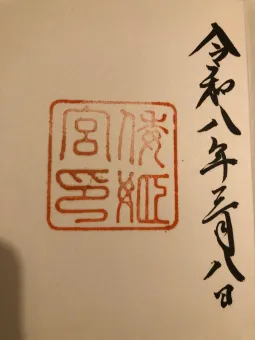 令和八年三月八日
倭姫宮印